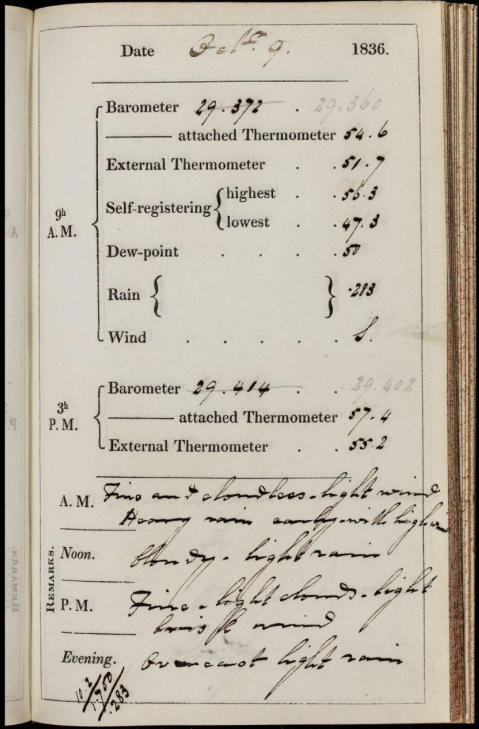 Date Octr. 9. 1836.
Barometer 29.372 . 29.360
attached Thermometer 54.6
External Thermometer . . 51.7
Self-registering { highest . . 56.3
lowest . . 47.3
Dew-point . . . . 50
Rain { } .283
Wind . . . . . S.
9h A.M.
Barometer 29.414 . . 29.402
attached Thermometer 57.4
External Thermometer . . 55.2
3h P.M.
REMARKS.
A.M. Fine and cloudless - light wind
Heavy rain early with high wind
Noon. Cloudy - light rain
P.M. Fine - light clouds - light
brisk wind
Evening. Overcast light rain
10.2
1.750
.283